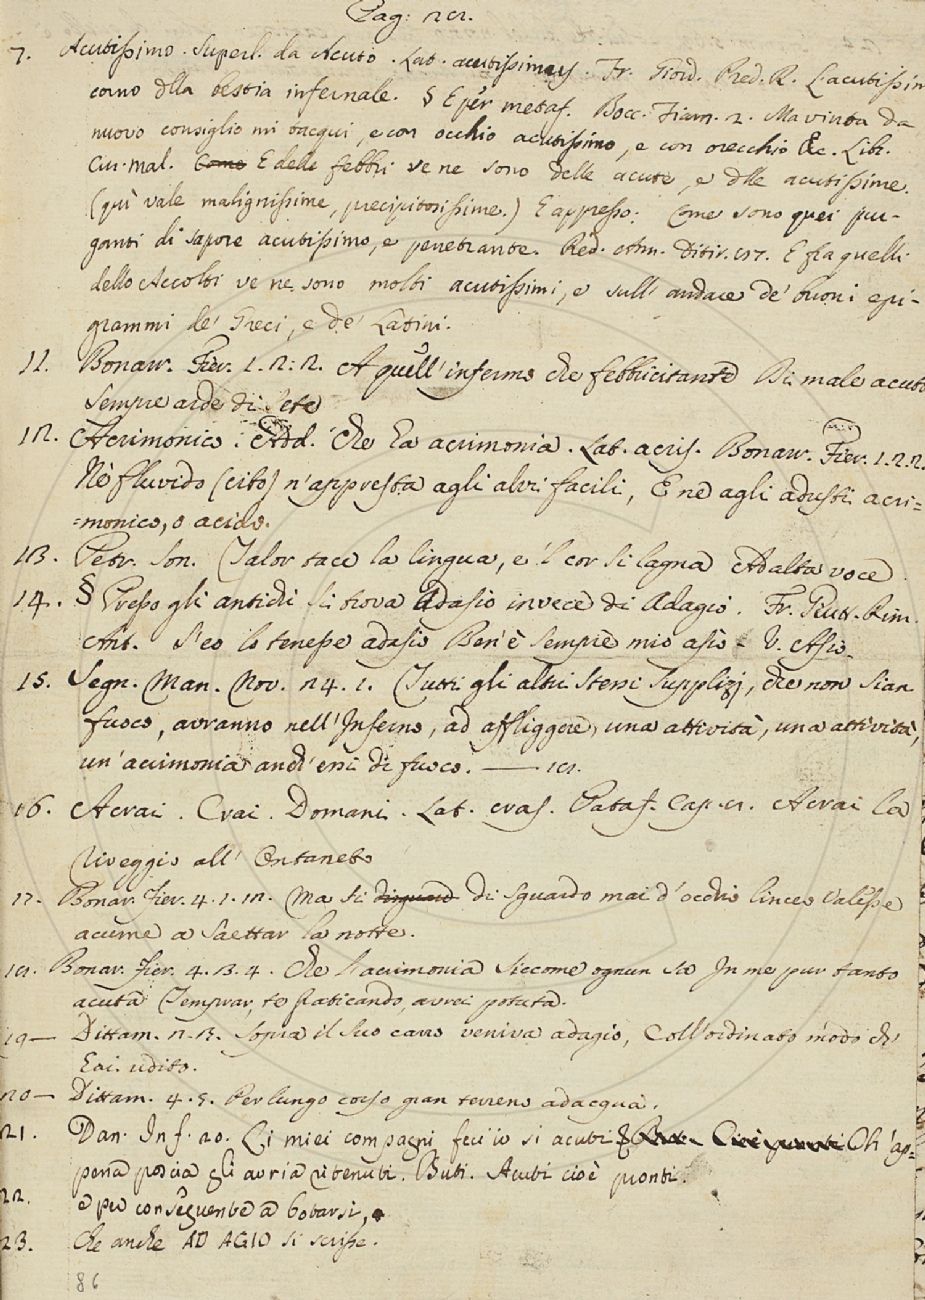 Pag: 18.
7. Acutissimo. Superl. da Acuto. Lat. acutissimus. Fr. Giord. Pred. R. L'acutissim
corno dlla bestia infernale. § E per metaf. Bocc. Fiam. 2. Ma vinta da
nuovo consiglio mi tacqui, e con occhio acutissimo, e con orecchio &c. Libr.
Cur. mal. Come E delle febbri ve ne sono delle acute, e dlle acutissime.
(quì vale malignissime, precipitosissime.) E appresso: Come sono quei pur-
ganti di sapore acutissimo, e penetrante. Red. Ann. Ditir. 87. E fra quelli
dello Accolti ve ne sono molti acutissimi, e sull' andare de' buoni epi-
grammi de' Greci, e de' Latini.
11. Bonarr. Fier. 1. 2. 2. A quell' infermo che febbricitante Di male acuto
sempre arde di sete
12. Acrimonico. Add. Che ha acrimonia. Lat. acris. Bonarr. Fier. 1. 2. 2.
Nè fluvido (cibo) n'appresta agli alvi facili, E nè agli adusti acri=
=monico, o acido.
13. Petr. Son. Talor tace la lingua, e 'l cor si lagna Ad alta voce
14. § Presso gli antichi si trova Adasio invece di Adagio. Fr. Guitt. Rim.
Ant. S'eo lo tenesse adasio Ben' è sempre mio asio. V. Asio.
15. Segn. Man. Nov. 24. 1. Tutti gli altri stessi supplizj, che non sian
fuoco, avranno nell' Inferno, ad affliggere, una attività, una attività,
un' acrimonia anch' essi di fuoco. — 18.
16. Acrai. Crai. Domani. Lat. cras. Pataf. Cap. 8. Acrai la
riveggio all' Ontaneto
17. Bonar. Fier. 4. 1. 12. Ma si di sguardo mai d' occhio linceo valesse
acume a saettar la notte.
18. Bonar. Fier. 4. 3. 4. Che l' acrimonia siccome ognun sa In me pur tanto
acuta Temprar, te faticando, avrei potuta.
19— Dittam. 2. 3. Sopra il suo carro veniva adagio, Coll' ordinato modo ch'
hai udito.
20— Dittam. 4. 5. Per lungo corso gran terreno adacqua.
21. Dan. Inf. 26. Li miei compagni fec' io sì acuti Ch' ap-
pena poscia gli avria ritenuti. Buti. Acuti cioè pronti.
22. e per conseguente a botarsi,
23. Che anche AD AGIO si scrisse.
86